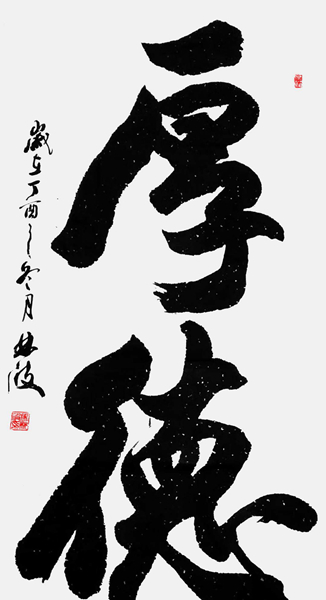 厚德
歲在丁酉之冬月林波